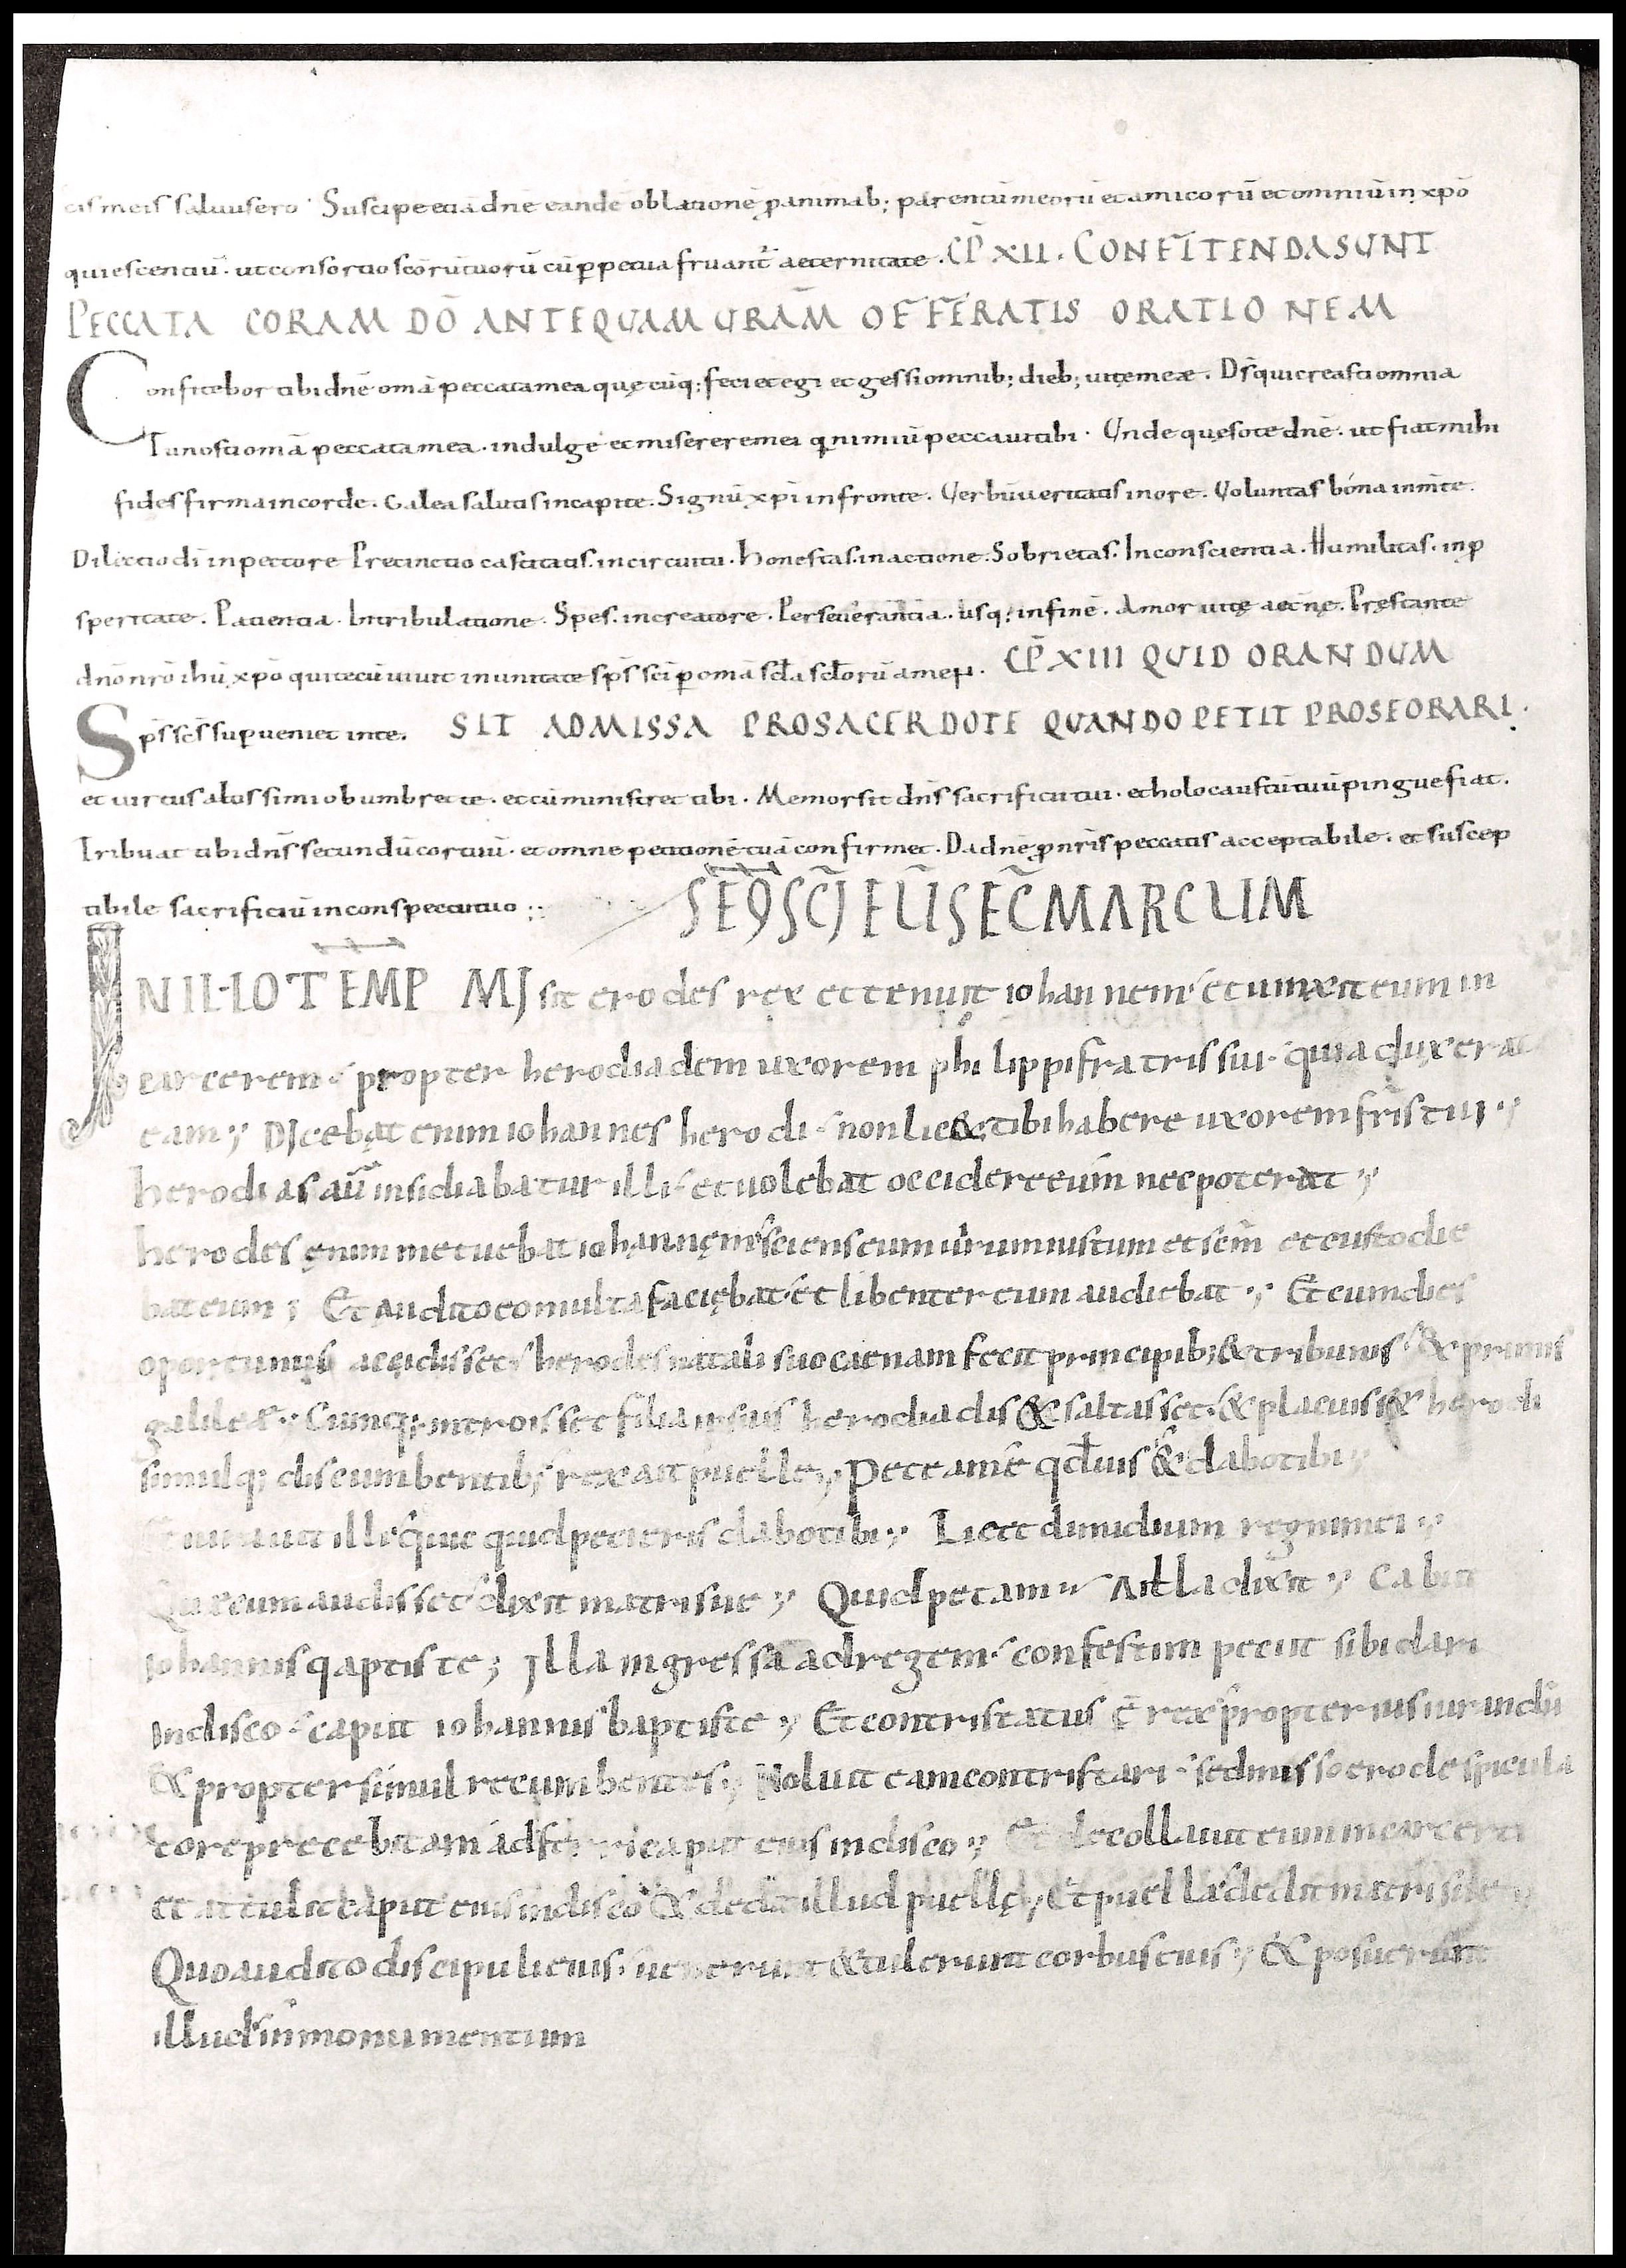 cis meis saluus ero. Suscipe etiā dn̄e eandē oblationē ꝓ animab; parentū meorū et amicorū et omniū in xp̄o
quiescentiū. ut consortio scōrū tuorū cū ꝑpetua fruant̄ aeternitate. CP̄ XII. CONFITENDA SUNT
PECCATA CORAM DŌ ANTEQUAM URAM̄ OFFERATIS ORATIONEM
Confitebor tibi dn̄e omā peccata mea quę cūq; feci et egi et gessi omnib; dieb; uitę meæ. Ds̄ qui creasti omnia
Tu nosti omā peccata mea. indulge et miserere mei q nimiū peccaui tibi. Unde quęso te dn̄e. ut fiat mihi
fides firma in corde. Galea salutis in capite. Signū xp̄i in fronte. Uerbū ueritatis in ore. Uoluntas bona in m̄te.
Dilectio dī in pectore Precinctio castitatis. in circuitu. Honestas. in actione. Sobrietas. In conscientia. Humilitas. in ꝓ
speritate. Patientia. In tribulatione. Spes. in creatore. Perseuerantia. usq; in finē. Amor uitę aet̄nę. Prestante
dn̄o nr̄o ihū xp̄o qui tecū uiuit in unitate sp̄s sc̄i ꝑ omā scła scłorū amen. CP̄ XIII QUID ORANDUM
Sp̄s sc̄s suꝑueniet in te. SIT AD MISSA PRO SACERDOTE QUANDO PETIT PRO SE ORARI.
et uirtus altissimi obumbret te. et cū ministret tibi. Memor sit dn̄s sacrificii tui. et holocaustū tuū pingue fiat.
Tribuat tibi dn̄s secundū cor tuū. et omne petitionē tuā confirmet. Da dn̄e ꝓ nr̄is peccatis acceptabile. et suscep
tibile sacrificiū in conspectu tuo; SEQ̄ SCĪ EUĪS EC̄ MARCUM
IN ILLO TEMP̄ MJsit erodes rex et tenuit iohannem et uinxit eum in
carcerem propter herodiadem uxorem philippi fratris sui quia duxerat
eam; DJcebat enim iohannes herodi non licet tibi habere uxorem fr̄is tui;
herodias aūt insidiabatur illi et uolebat occidere eum nec poterat;
herodes enim metuebat iohannem sciens eum uirum iustum et sc̄m et custodie
bat eum; Et audito eo multa faciebat et libenter eum audiebat; Et cum dies
oportunus accidisset herodes natali suo caenam fecit principib; & tribunis & primis
galileæ. Cumq; introisset filia ipsius herodiadis & saltasset & placuiss& herodi
simulq; discumbentib; rex ait puelle; Pete a me qd̄ uis & dabo tibi;
Et iurauit illi quic quid petieris dabo tibi; Licet dimidium regni mei;
Quæ cum audisset dixit matri sue; Quid petam At illa dixit; Cabut
iohannis qaptiste; Jlla ingressa ad regem confestim petiit sibi dari
In disco caput iohannis baptiste; Et contristatus ē rex propter ius iurandū
& propter simul recumbentes; Noluit eam contristari sed misso erode spicula
core precebit amadferri caput eius in disco; Et decollauit eum in carcere
et attulit caput eius in disco & dedit illud puellę; Et puella dedit matri sue;
Quo audito discipuli eius. uenerunt & tulerunt corbus euis; & posuerunt
illud in monumentum